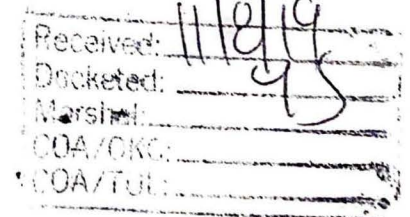 Received: 11/8/19
Docketed:
Marshal:
COA/OKC:
COA/TUL: